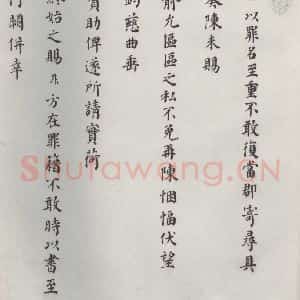 以罪名至重不敢復當郡寄尋具
奏陳未賜
俞允區區之私不免再陳悃愊伏望
鈞慈曲垂
賛助俾遂所請實荷
終始之賜 方在罪籍不敢時以書至
闌併幸
Shufawang.CN